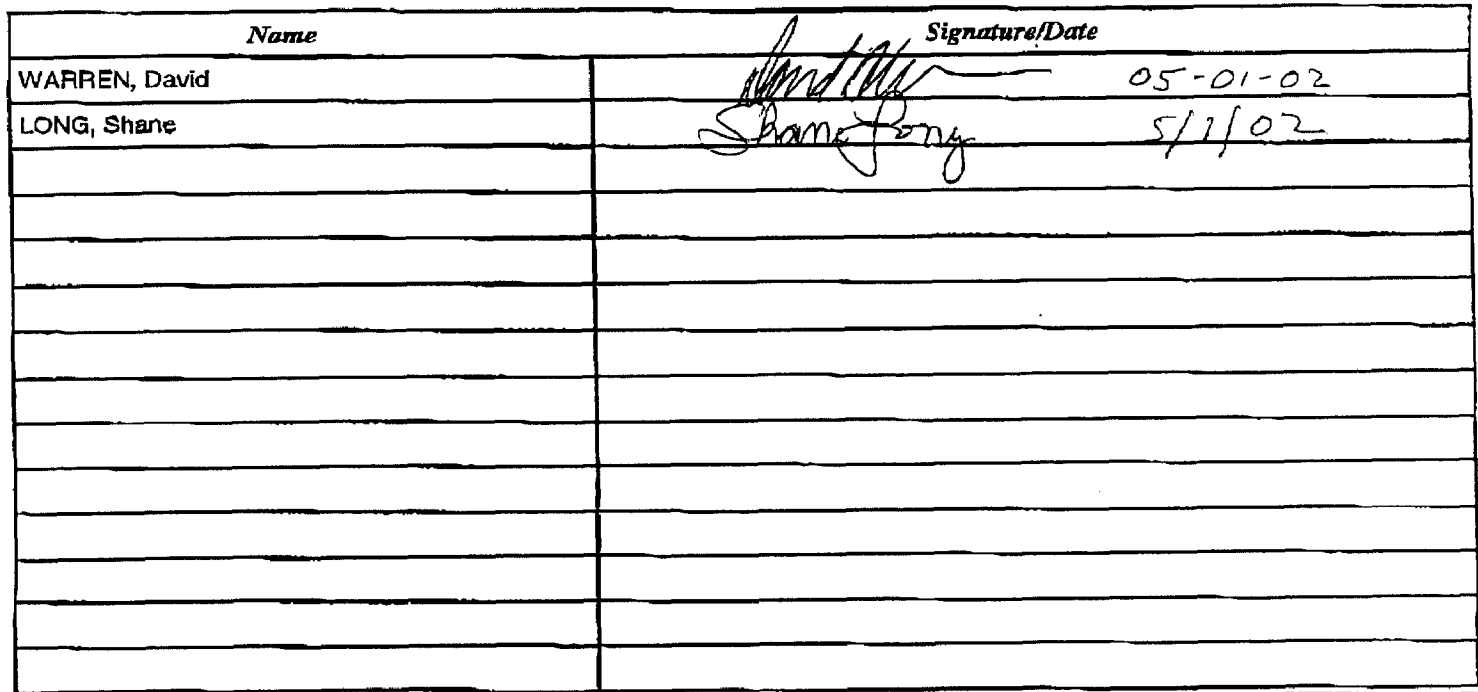 Name Signature/Date
WARREN, David 05-01-02
LONG, Shane Shane Long 5/1/02